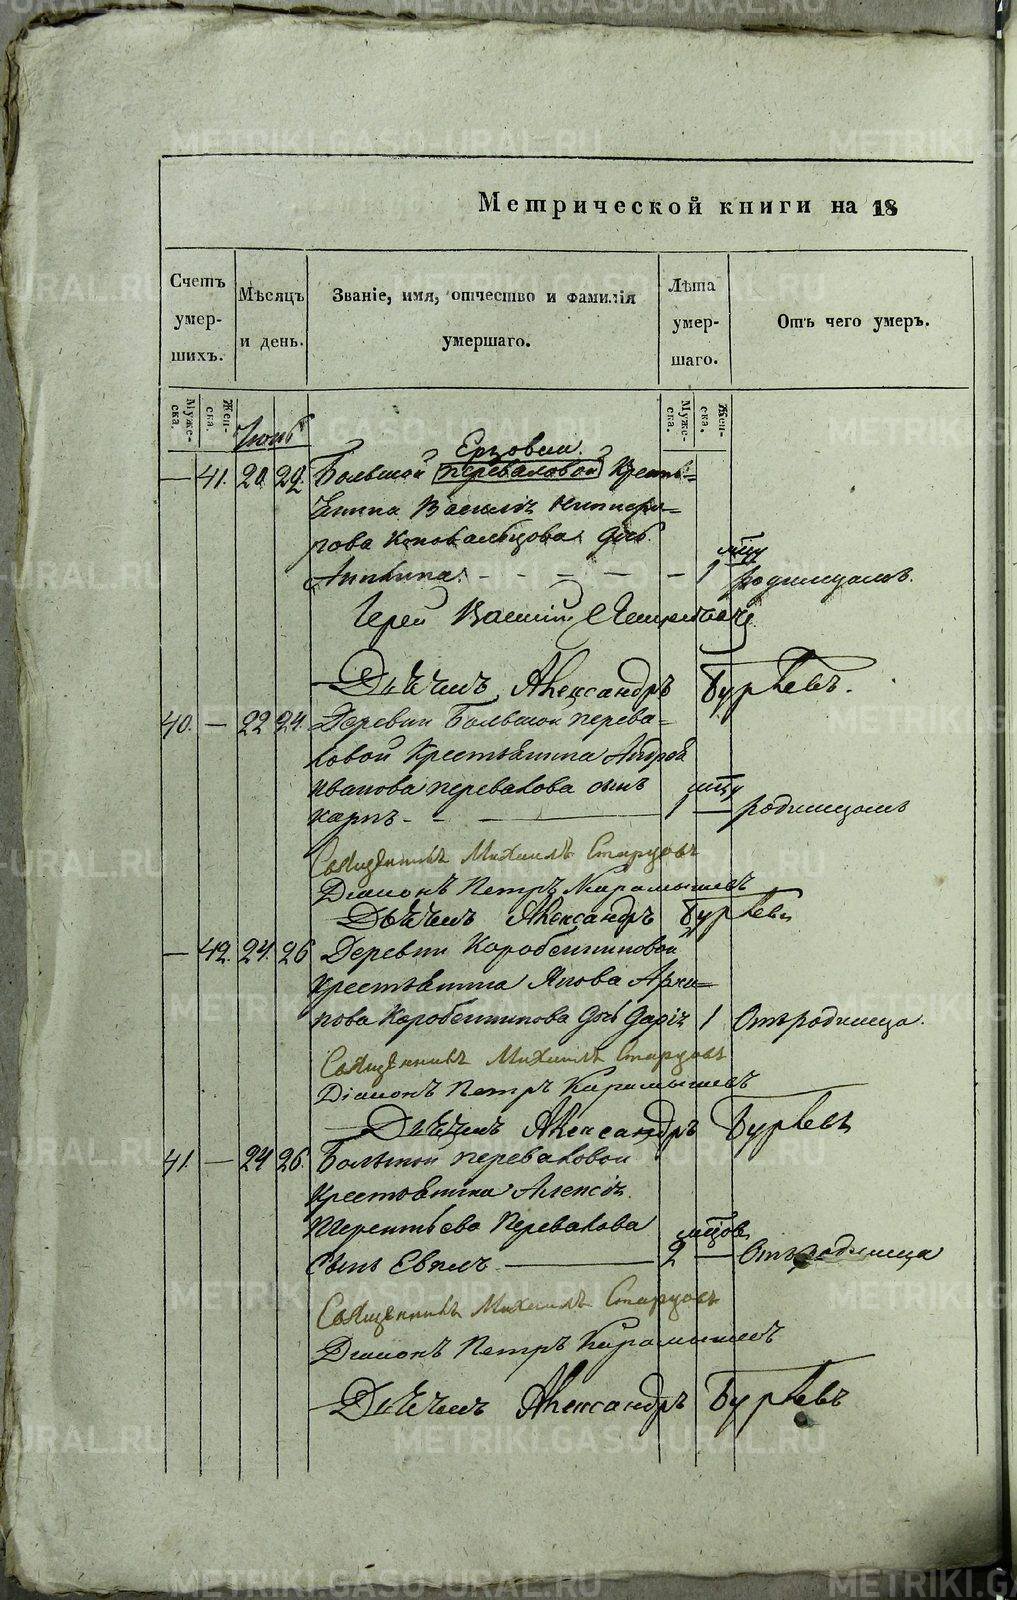 Метрической книги на 18
Счетъ умер- шихъ.
Мѣсяцъ и день.
Званіе, имя, отчество и фамилія умершаго.
Лѣта умер- шаго.
Отъ чего умеръ.
Муже- ска.
Жен- ска.
Муже- ска.
Жен- ска.
Іюнь
— 41. 20 22. Большой Перваловой Кресть=
янина Василія
рова Коновальцова дочь
1 мцу родимцомъ.
Іерей Василій
Дьячекъ Александръ Бурлевъ.
40. — 22 24. Деревни Большой Перева=
ловой Крестьянина Андрея
Иванова Перевалова сынъ
Карпъ - - 1 мцу родимцомъ
Священникъ Михаилъ Старцовъ
Діаконъ Петръ Карамышевъ
Дьячекъ Александръ Бурлевъ
— 42. 24. 26 Деревни Коробейниковой
Крестьянина Якова Архи=
пова Коробейникова дочь Дарія 1 Отъ родимца.
Священникъ Михаилъ Старцовъ
Діаконъ Петръ Карамышевъ
Дьячекъ Александръ Бурлевъ
41. — 24 26. Большой Переваловой
Крестьянина Алексія
Терентьева Перевалова
сынъ 2 мцов. Отъ родимца
Священникъ Михаилъ Старцовъ
Діаконъ Петръ Карамышевъ
Дьячекъ Александръ Бурлевъ
METRIKI.GASO-URAL.RU